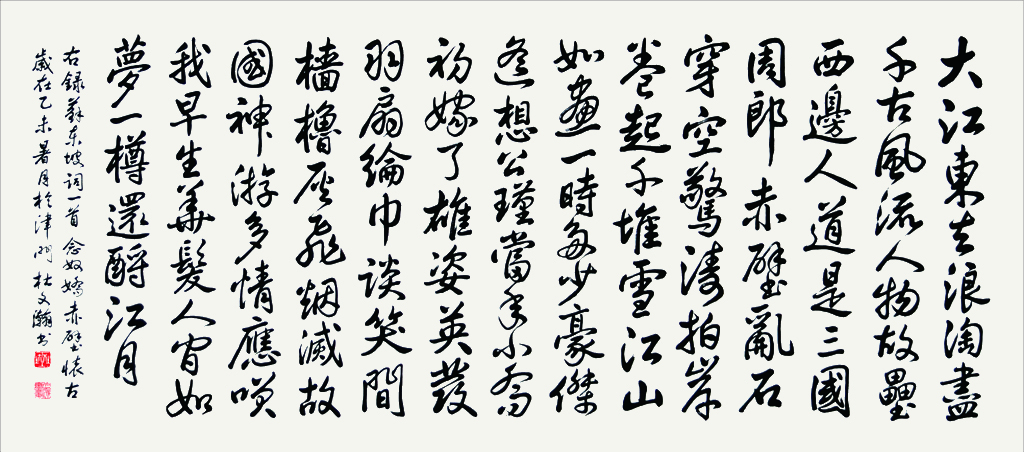 大江東去浪淘盡
千古風流人物故壘
西邊人道是三國
周郎赤壁亂石
穿空驚濤拍岸
卷起千堆雪江山
如畫一時多少豪傑
遙想公瑾當年小喬
初嫁了雄姿英發
羽扇綸巾談笑間
檣櫓灰飛烟滅故
國神游多情應嘆
我早生華髮人間如
夢一樽還酹江月
右錄蘇東坡詞一首念奴嬌赤壁懷古
歲在乙未暑月於津門杜文瀚书